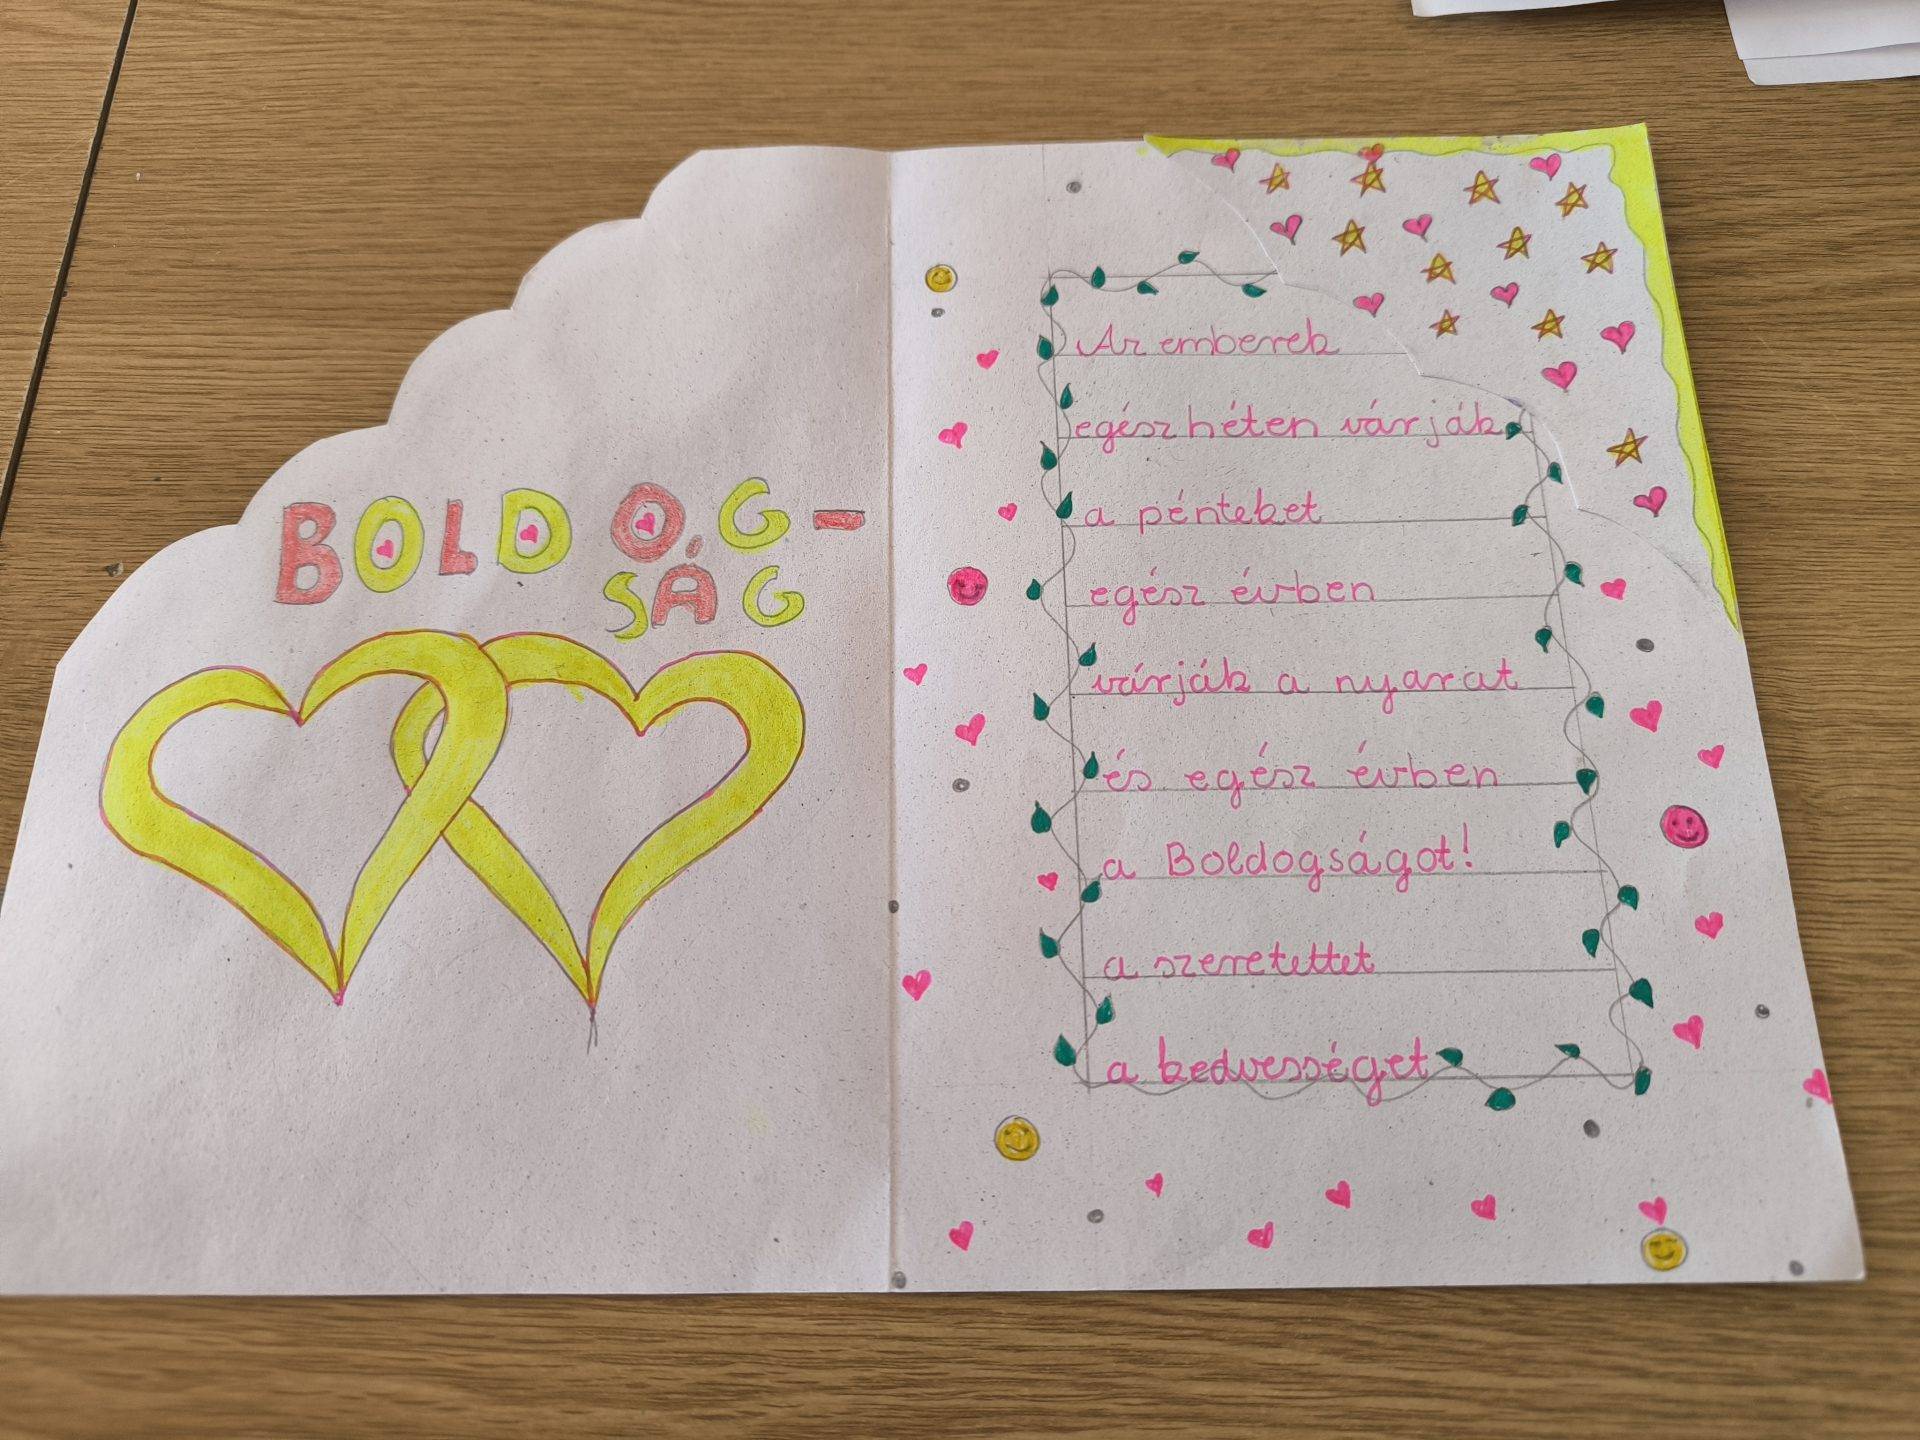 BOLDOG-
SÁG
Az emberek
egész héten várják
a pénteket
egész évben
várják a nyarat
és egész évben
a Boldogságot!
a szeretettet
a kedvességet